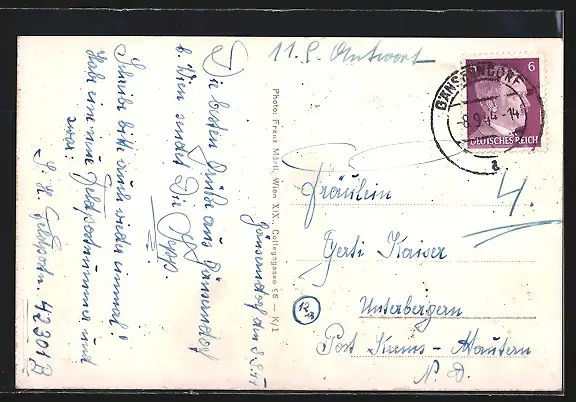 11.9. Antwort
Die besten Grüße aus Gänserndorf
b. Wien sendet Dir Sepp.
Schreibe bitte auch wieder einmal!
Habe eine neue Feldpostnummer und
zwar:
Feldpostn. 42301 B
Gänserndorf den 8.9.44
Photo: Franz Mörtl, Wien XIX., Collegegasse 96 — K/1
GÄNSERNDORF
-8.9.44.-14
a
6
DEUTSCHES REICH
Fräulein
4.
Gerti Kaiser
Unterbergern
Post Krems-Mautern
N. D.